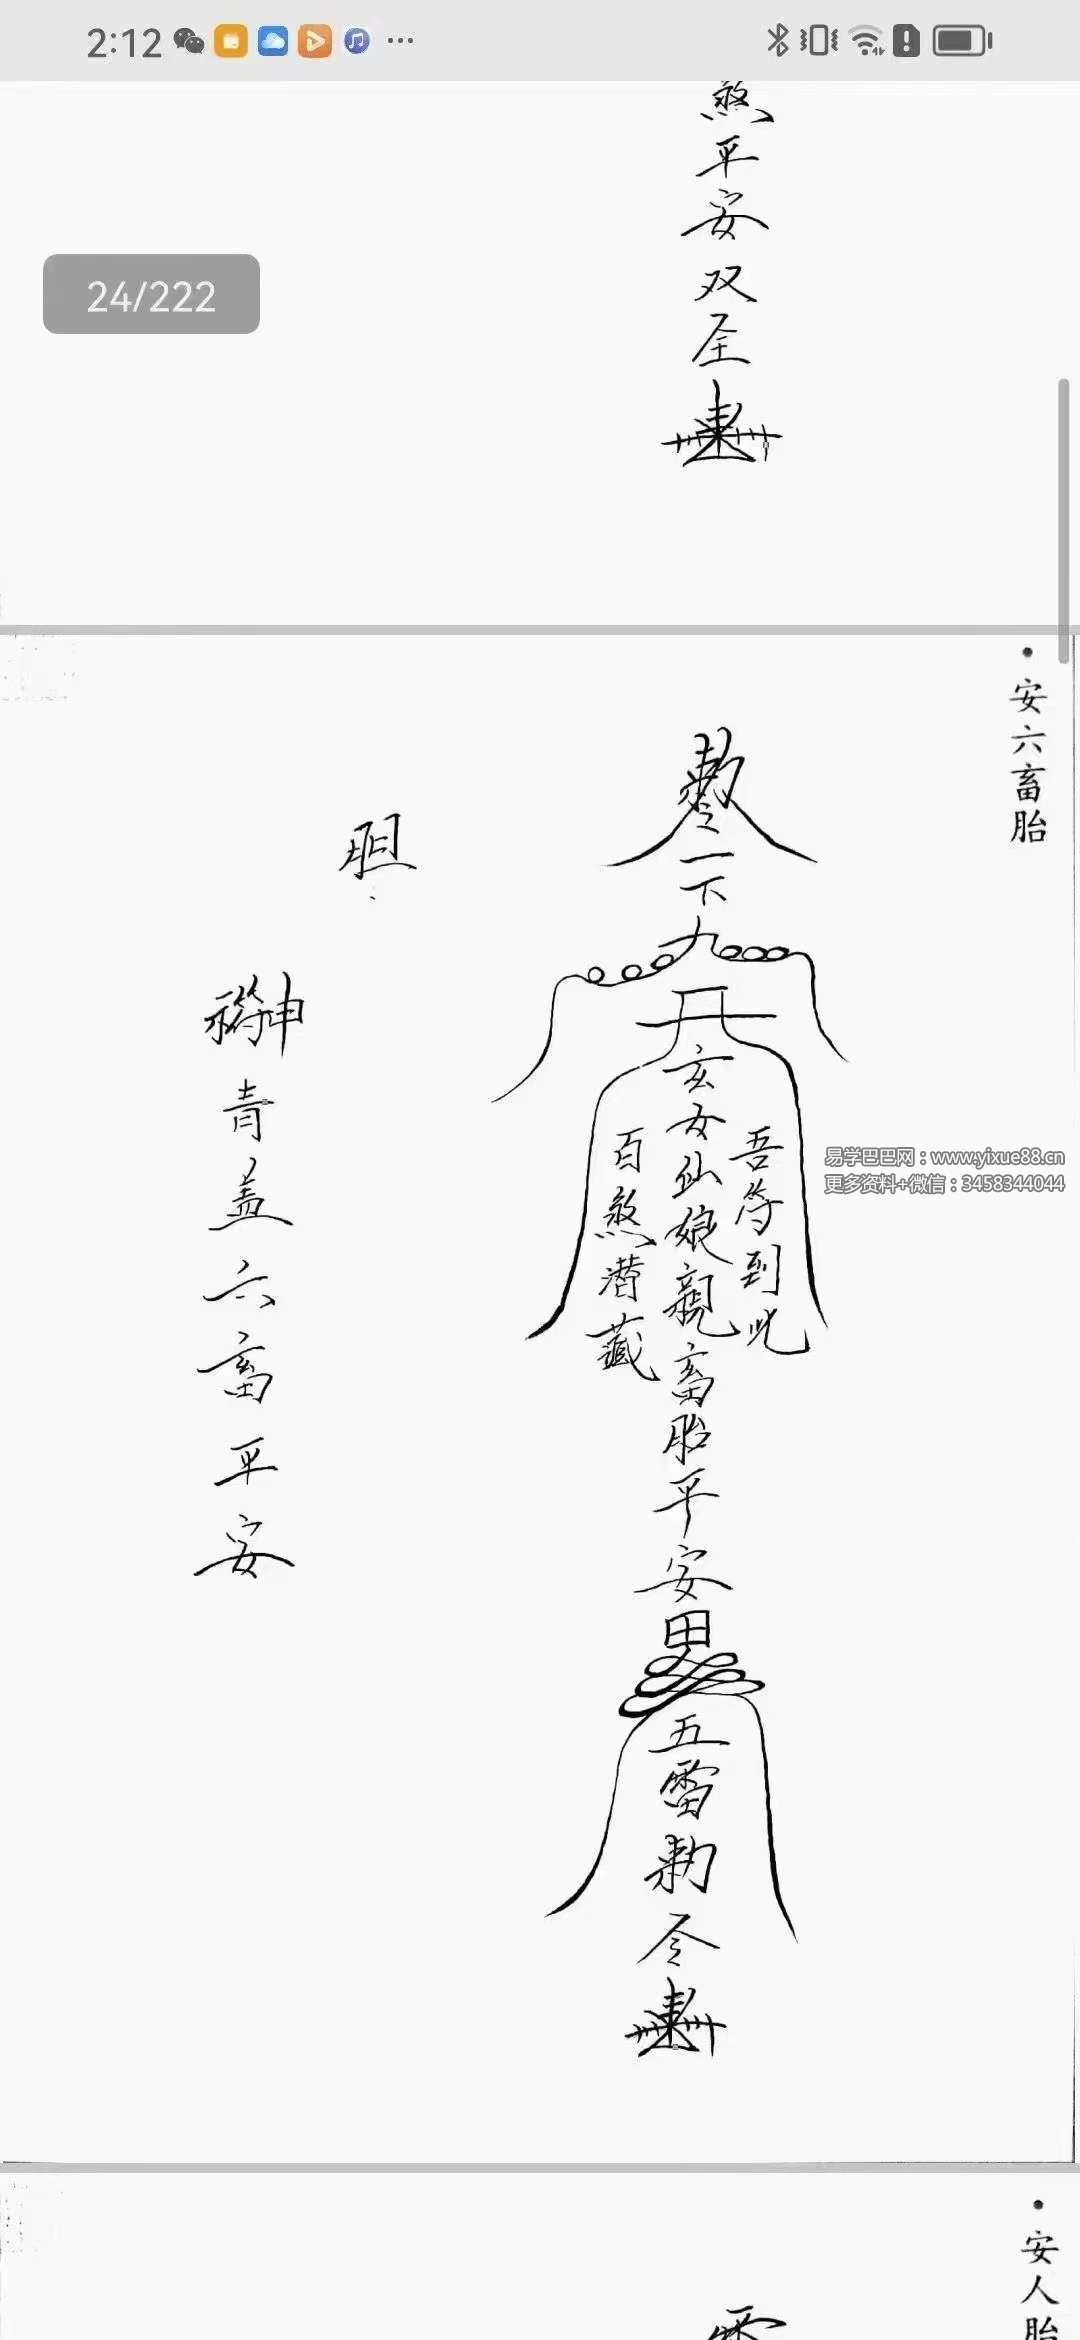 2:12
24/222
煞平安双全
•安六畜胎
敕令一下九天玄女仙娘親畜胎平安
吾符到此
百煞潜藏
五雷勅令
胆
青盖六畜平安
易学巴巴网：www.yixue88.cn
更多资料+微信：3458344044
•安人胎